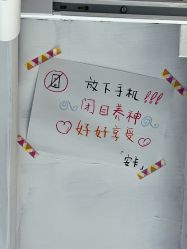 放下手机!!!
闭目养神
好好享受
安卡